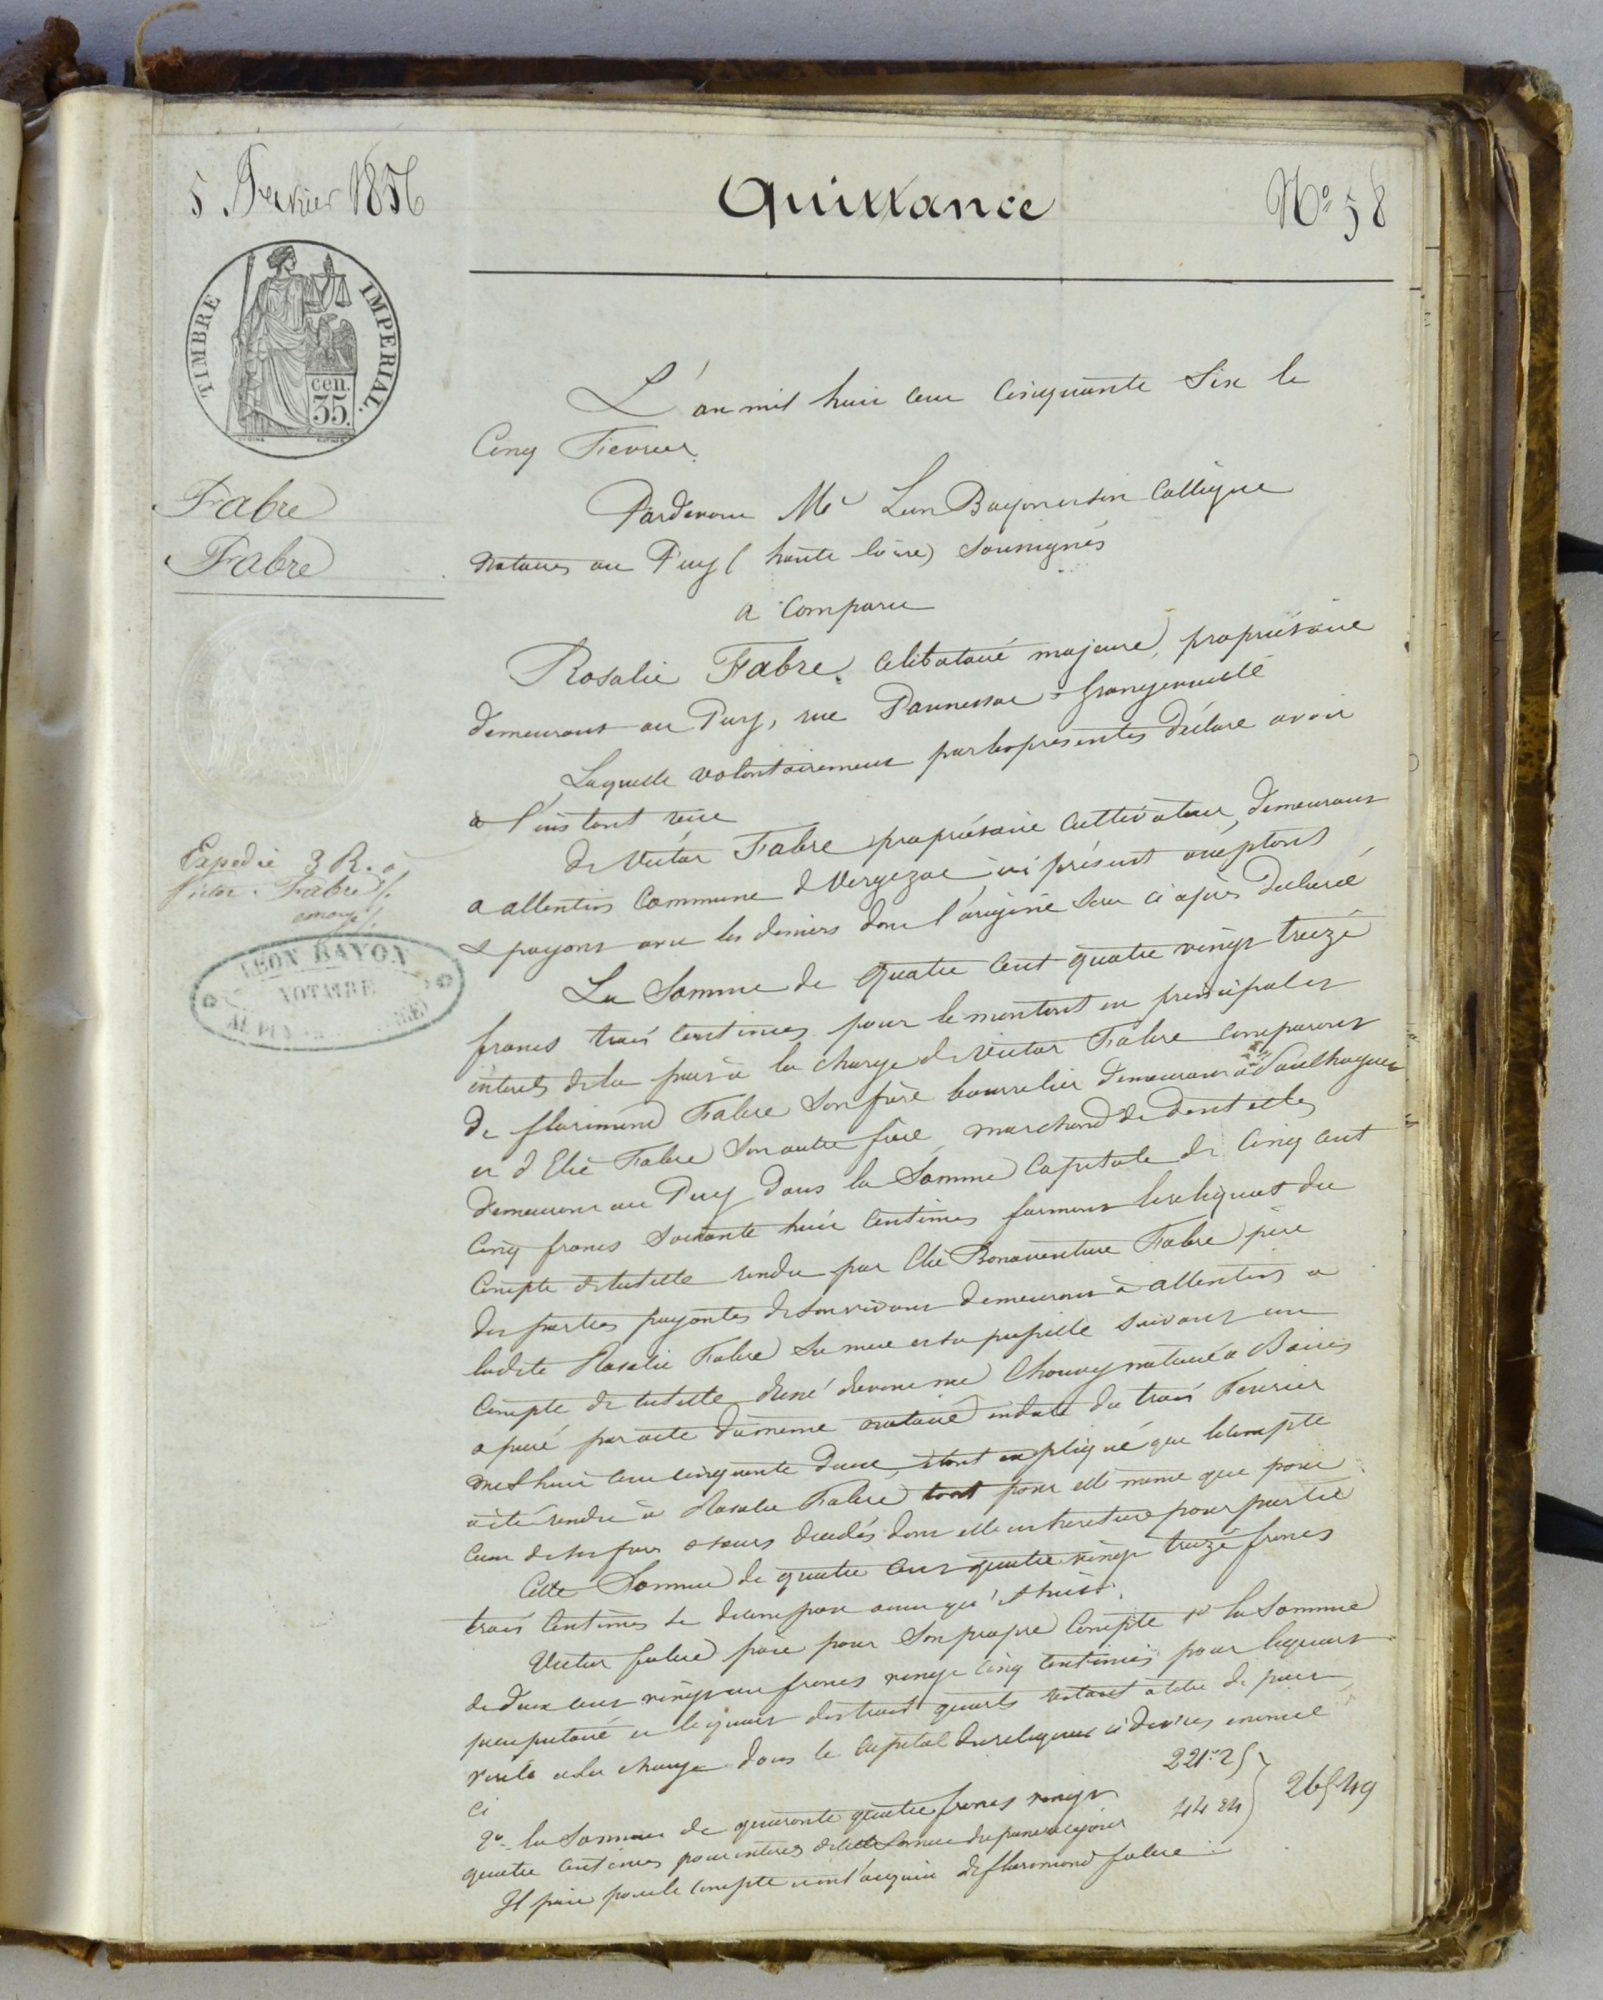 5 Fevrier 1856
Quittance
No 58
TIMBRE IMPERIAL.
cen. 35.
Fabre
Fabre
Expedié 3 R. à
Victor Fabre
LEON BAYON
NOTAIRE
AU PUY
L'an mil huit cent cinquante Six le
Cinq Fevrier
Pardevant Me Léon Bayon et son Collègue
notaires au Puy (haute loire) Soussignés
a Comparu
Rosalie Fabre, célibataire majeure, propriétaire
demeurant au Puy, rue Pannessac = Grangevieille
Laquelle volontairement par les présentes déclare avoir
à l'instant reçu
De Victor Fabre propriétaire cultivateur, demeurant
a allentin Commune de Vergezac ici présent acceptant
& payant avec les deniers dont l'origine sera ci après déclaré
La Somme de quatre cent quatre vingt treize
francs trois centimes, pour le montant en principal et
interets de la part à la charge de Victor Fabre comparant
De florimond Fabre Son frère bourrelier demeurant à Saulhagues
et d'Elie Fabre Son autre frère, marchand de dentelles
demeurant au Puy dans la Somme Capitale de Cinq cent
cinq francs Soixante huit Centimes formant le reliquat du
Compte de tutelle rendu par Elie Bonaventure Fabre père
des parties payantes de son vivant demeurant à allentin a
ladite Rosalie Fabre sa niece et sa pupille Suivant un
Compte de tutelle dréssé devant me Chouvy notaire à Bains
apuré par acte du même notaire en date du trois Fevrier
mil huit cent cinquante deux, étant expliqué que le compte
a été rendu à Rosalie Fabre tant pour elle même que pour
ceux de ses freres & soeurs décédés dont elle est héritière pour partie
Cette Somme de quatre cent quatre vingt treize francs
trois Centimes se decompose ainsi qu'il suit.
Victor fabre paie pour Son propre Compte 1o la Somme
de deux cent vingt un francs vingt cinq centimes pour le quart
preciputaire et le quart des trois quarts restant à titre de part
virile à sa charge dans le Capital du reliquat ci dessus enoncé
ci
221.25
2o la Somme de quarante quatre francs vingt
quatre Centimes pour interets de cette Somme jusqu'a ce jour
44 24
265 49
Il paie pour le compte et en l'acquit de florimond fabre